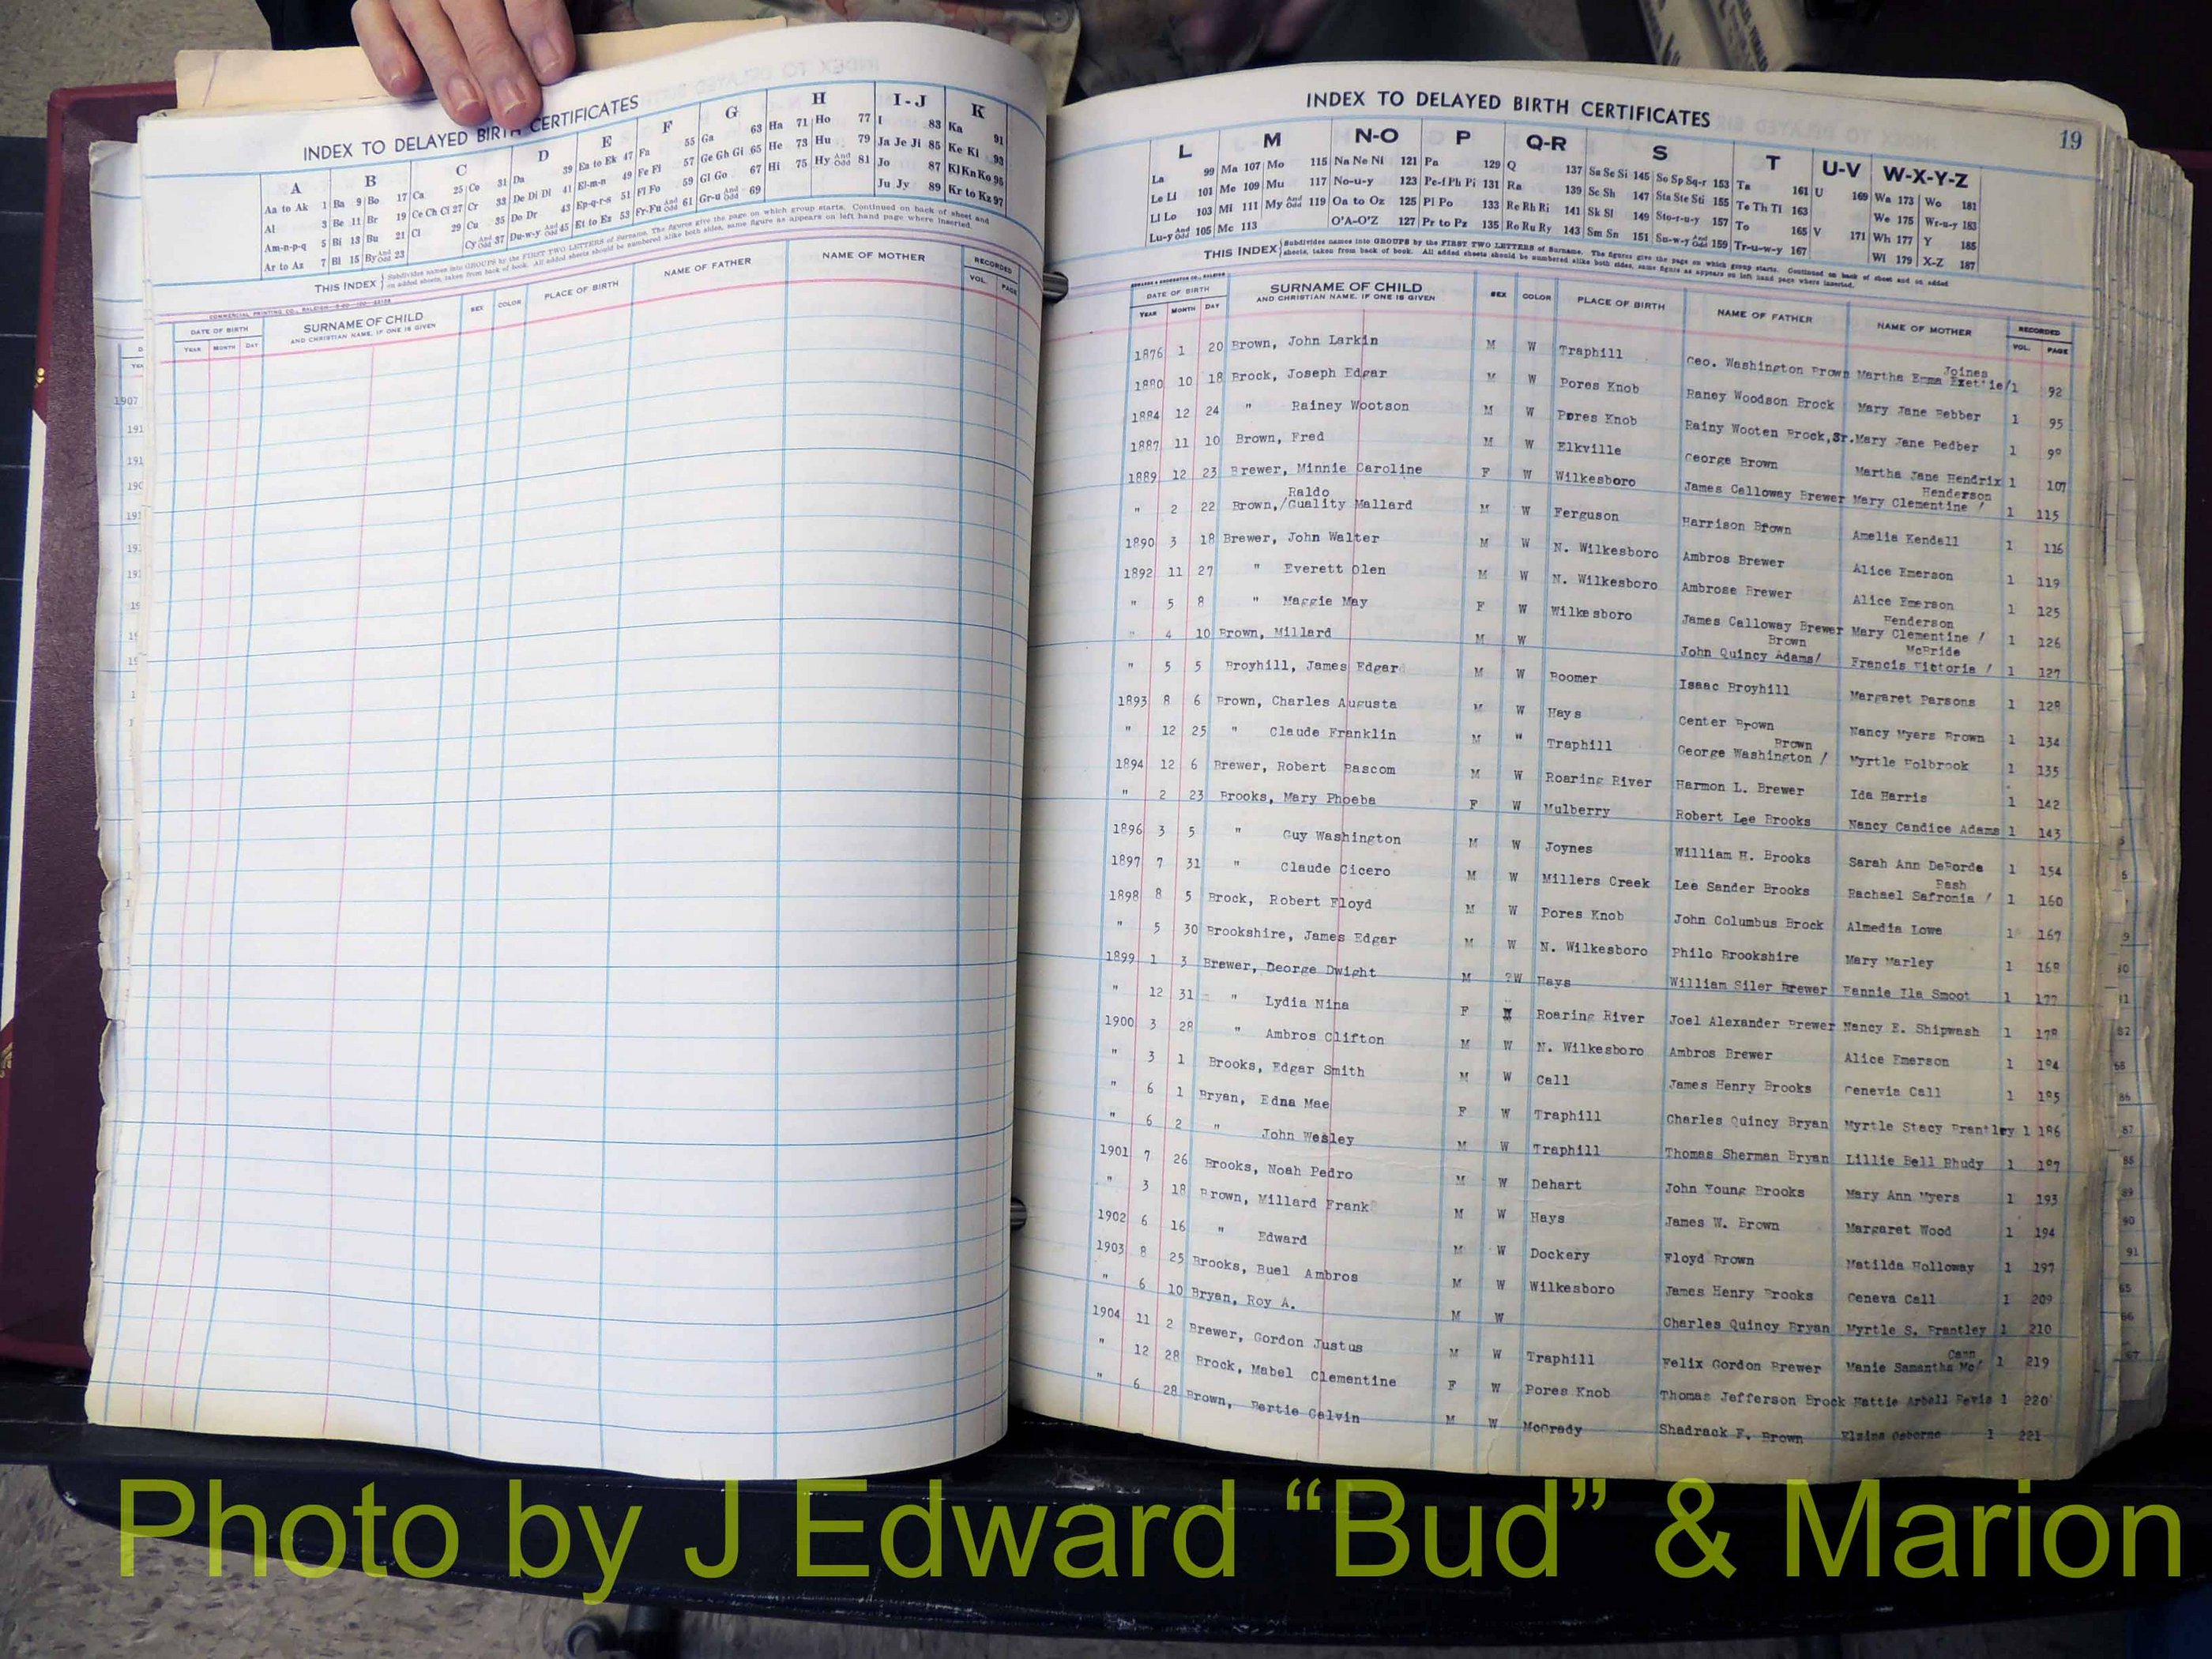 INDEX TO DELAYED BIRTH CERTIFICATES
A B C D E F G H I-J K
Aa to Ak 1 Ba 9 Bo 17 Ca 25 Co 31 Da 39 Ea to Ek 47 Fa 55 Ga 63 Ha 71 Ho 77 I 83 Ka 91
Al 3 Be 11 Br 19 Ce Ch Ci 27 Cr 33 De Di Dl 41 El-m-n 49 Fe Fi 57 Ge Gh Gi 65 He 73 Hu 79 Ja Je Ji 85 Ke Ki 93
Am-n-p-q 5 Bi 13 Bu 21 Cl 29 Cu 35 Do Dr 43 Ep-q-r-s 51 Fl Fo 59 Gl Go 67 Hi 75 Hy And Odd 81 Jo 87 Kl Kn Ko 95
Ar to Az 7 Bl 15 By And Odd 23 Cy And Odd 37 Du-w-y And Odd 45 Et to Ez 53 Fr-Fu And Odd 61 Gr-u And Odd 69 Ju Jy 89 Kr to Kz 97
THIS INDEX Subdivides names into GROUPS by the FIRST TWO LETTERS of Surname. The figures give the page on which group starts. Continued on back of sheet and
on added sheets, taken from back of book. All added sheets should be numbered alike both sides, same figure as appears on left hand page where inserted.
DATE OF BIRTH SURNAME OF CHILD SEX COLOR PLACE OF BIRTH NAME OF FATHER NAME OF MOTHER RECORDED
YEAR MONTH DAY AND CHRISTIAN NAME, IF ONE IS GIVEN VOL. PAGE
1907
INDEX TO DELAYED BIRTH CERTIFICATES 19
L M N-O P Q-R S T U-V W-X-Y-Z
La 99 Ma 107 Mo 115 Na Ne Ni 121 Pa 129 Q 137 Sa Se Si 145 So Sp Sq-r 153 Ta 161 U 169 Wa 173 Wo 181
Le Li 101 Me 109 Mu 117 No-u-y 123 Pe-f Ph Pi 131 Ra 139 Sc Sh 147 Sta Ste Sti 155 Te Th Ti 163 We 175 Wr-u-y 183
Ll Lo 103 Mi 111 My And Odd 119 Oa to Oz 125 Pl Po 133 Re Rh Ri 141 Sk Sl 149 Sto-r-u-y 157 To 165 V 171 Wh 177 Y 185
Lu-y And Odd 105 Mc 113 O'A-O'Z 127 Pr to Pz 135 Ro Ru Ry 143 Sm Sn 151 Su-w-y And Odd 159 Tr-u-w-y 167 Wi 179 X-Z 187
THIS INDEX Subdivides names into GROUPS by the FIRST TWO LETTERS of Surname. The figures give the page on which group starts. Continued on back of sheet and on added
sheets, taken from back of book. All added sheets should be numbered alike both sides, same figure as appears on left hand page where inserted.
DATE OF BIRTH SURNAME OF CHILD SEX COLOR PLACE OF BIRTH NAME OF FATHER NAME OF MOTHER RECORDED
YEAR MONTH DAY AND CHRISTIAN NAME, IF ONE IS GIVEN VOL. PAGE
1876 1 20 Brown, John Larkin M W Traphill Geo. Washington Brown Martha Emma Exettie/ Joines 1 92
1880 10 18 Brock, Joseph Edgar M W Pores Knob Raney Woodson Brock Mary Jane Bebber 1 95
1884 12 24 " Rainey Wootson M W Pores Knob Rainy Wooten Brock, Sr. Mary Jane Bedber 1 99
1887 11 10 Brown, Fred M W Elkville George Brown Martha Jane Hendrix 1 107
1889 12 23 Brewer, Minnie Caroline F W Wilkesboro James Calloway Brewer Mary Clementine / Henderson 1 115
" 2 22 Brown,/Guality Mallard Raldo M W Ferguson Harrison Brown Amelia Kendell 1 116
1890 3 18 Brewer, John Walter M W N. Wilkesboro Ambros Brewer Alice Emerson 1 119
1892 11 27 " Everett Olen M W N. Wilkesboro Ambrose Brewer Alice Emerson 1 125
" 5 8 " Maggie May F W Wilkesboro James Calloway Brewer Mary Clementine / Henderson 1 126
" 4 10 Brown, Millard M W John Quincy Adams/ Brown Francis Victoria / McBride 1 127
" 5 5 Broyhill, James Edgar M W Boomer Isaac Broyhill Margaret Parsons 1 128
1893 8 6 Brown, Charles Augusta M W Hays Center Brown Nancy Myers Brown 1 134
" 12 25 " Claude Franklin M " Traphill George Washington / Brown Myrtle Holbrook 1 135
1894 12 6 Brewer, Robert Bascom M W Roaring River Harmon L. Brewer Ida Harris 1 142
" 2 23 Brooks, Mary Phoeba F W Mulberry Robert Lee Brooks Nancy Candice Adams 1 143
1896 3 5 " Guy Washington M W Joynes William H. Brooks Sarah Ann DeBorde 1 154
1897 7 31 " Claude Cicero M W Millers Creek Lee Sander Brooks Rachael Safronia / Bash 1 160
1898 8 5 Brock, Robert Floyd M W Pores Knob John Columbus Brock Almedia Lowe 1 167
" 5 30 Brookshire, James Edgar M W N. Wilkesboro Philo Brookshire Mary Marley 1 168
1899 1 3 Brewer, George Dwight M W Hays William Siler Brewer Fannie Ila Smoot 1 177
" 12 31 " Lydia Nina F W Roaring River Joel Alexander Brewer Nancy E. Shipwash 1 178
1900 3 28 " Ambros Clifton M W N. Wilkesboro Ambros Brewer Alice Emerson 1 184
" 3 1 Brooks, Edgar Smith M W Call James Henry Brooks Genevia Call 1 185
" 6 1 Bryan, Edna Mae F W Traphill Charles Quincy Bryan Myrtle Stacy Brantley 1 186
" 6 2 " John Wesley M W Traphill Thomas Sherman Bryan Lillie Bell Bhudy 1 187
1901 7 26 Brooks, Noah Pedro M W Dehart John Young Brooks Mary Ann Myers 1 193
" 3 18 Brown, Millard Frank M W Hays James W. Brown Margaret Wood 1 194
1902 6 16 " Edward M W Dockery Floyd Brown Matilda Holloway 1 197
1903 8 25 Brooks, Buel Ambros M W Wilkesboro James Henry Brooks Geneva Call 1 209
" 6 10 Bryan, Roy A. M W Charles Quincy Bryan Myrtle S. Brantley 1 210
1904 11 2 Brewer, Gordon Justus M W Traphill Felix Gordon Brewer Manie Samantha Mc/ Cann 1 219
" 12 28 Brock, Mabel Clementine F W Pores Knob Thomas Jefferson Brock Hattie Arbell Bevis 1 220
" 6 28 Brown, Bertie Calvin M W McGrady Shadrack F. Brown Elzina Osborne 1 221
Photo by J Edward “Bud” & Marion